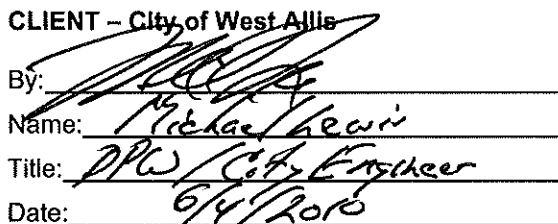 CLIENT – City of West Allis
By:
Name: Michael Lewis
Title: DPW / City Engineer
Date: 6/4/2010